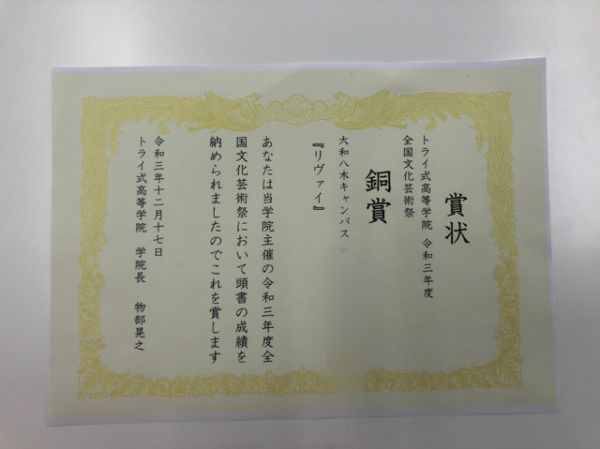 賞状
トライ式高等学院 令和三年度
全国文化芸術祭
銅賞
大和八木キャンパス
『リヴァイ』
あなたは当学院主催の令和三年度全
国文化芸術祭において頭書の成績を
納められましたのでこれを賞します
令和三年十二月十七日
トライ式高等学院 学院長 物部晃之